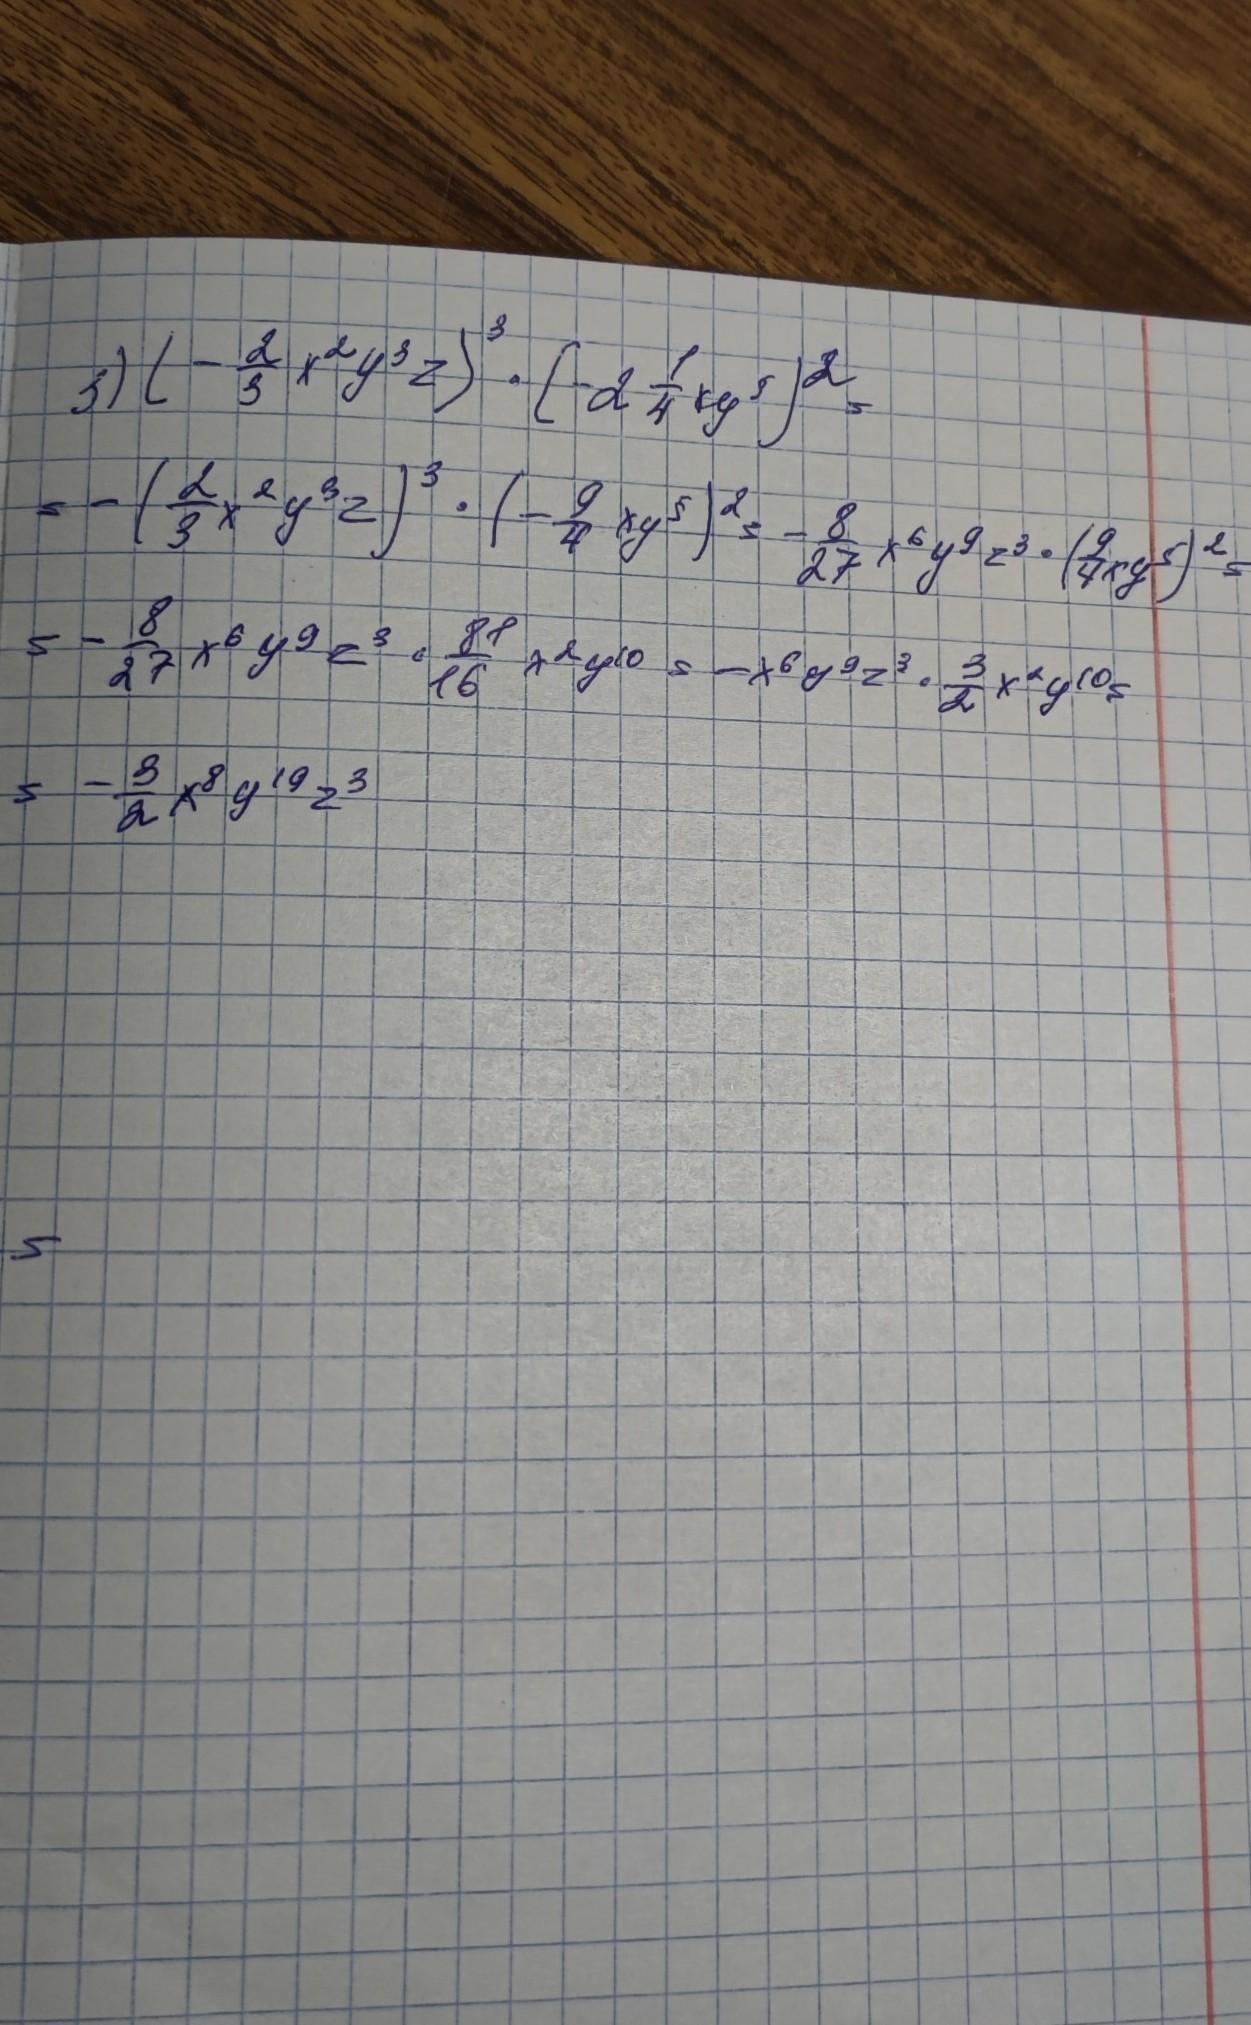 3) (-2/3 x²y³z)³ · (-2 1/4 xy⁵)² =
= -(2/3 x²y³z)³ · (-9/4 xy⁵)² = -8/27 x⁶y⁹z³ · (9/4 xy⁵)² =
= -8/27 x⁶y⁹z³ · 81/16 x²y¹⁰ = -x⁶y⁹z³ · 3/2 x²y¹⁰ =
= -3/2 x⁸y¹⁹z³
=